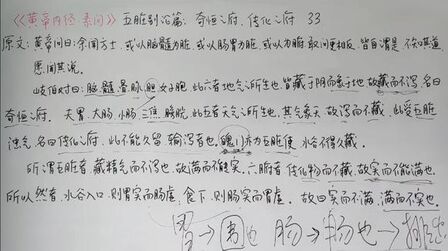 《黄帝内经 素问》 五脏别论篇：奇恒之府、传化之府 33
原文：黄帝问曰：余闻方士，或以脑髓为脏，或以肠胃为脏，或以为府，敢问更相反，皆自谓是，不知其道，
愿闻其说。
岐伯对曰：脑髓骨脉胆女子胞，此六者地气之所生也，皆藏于阴而象于地，故藏而不泻，名曰
奇恒之府。夫胃、大肠、小肠、三焦、膀胱，此五者天气之所生也，其气象天，故泻而不藏，此受五脏
浊气，名曰传化之府，此不能久留，输泻者也，魄门亦为五脏使，水谷不得久藏。
所谓五脏者，藏精气而不泻也，故满而不能实。六腑者，传化物而不藏，故实而不能满也。
所以然者，水谷入口，则胃实而肠虚，食下，则肠实而胃虚。故曰实而不满，满而不实也。
胃→围也 肠→畅也→排